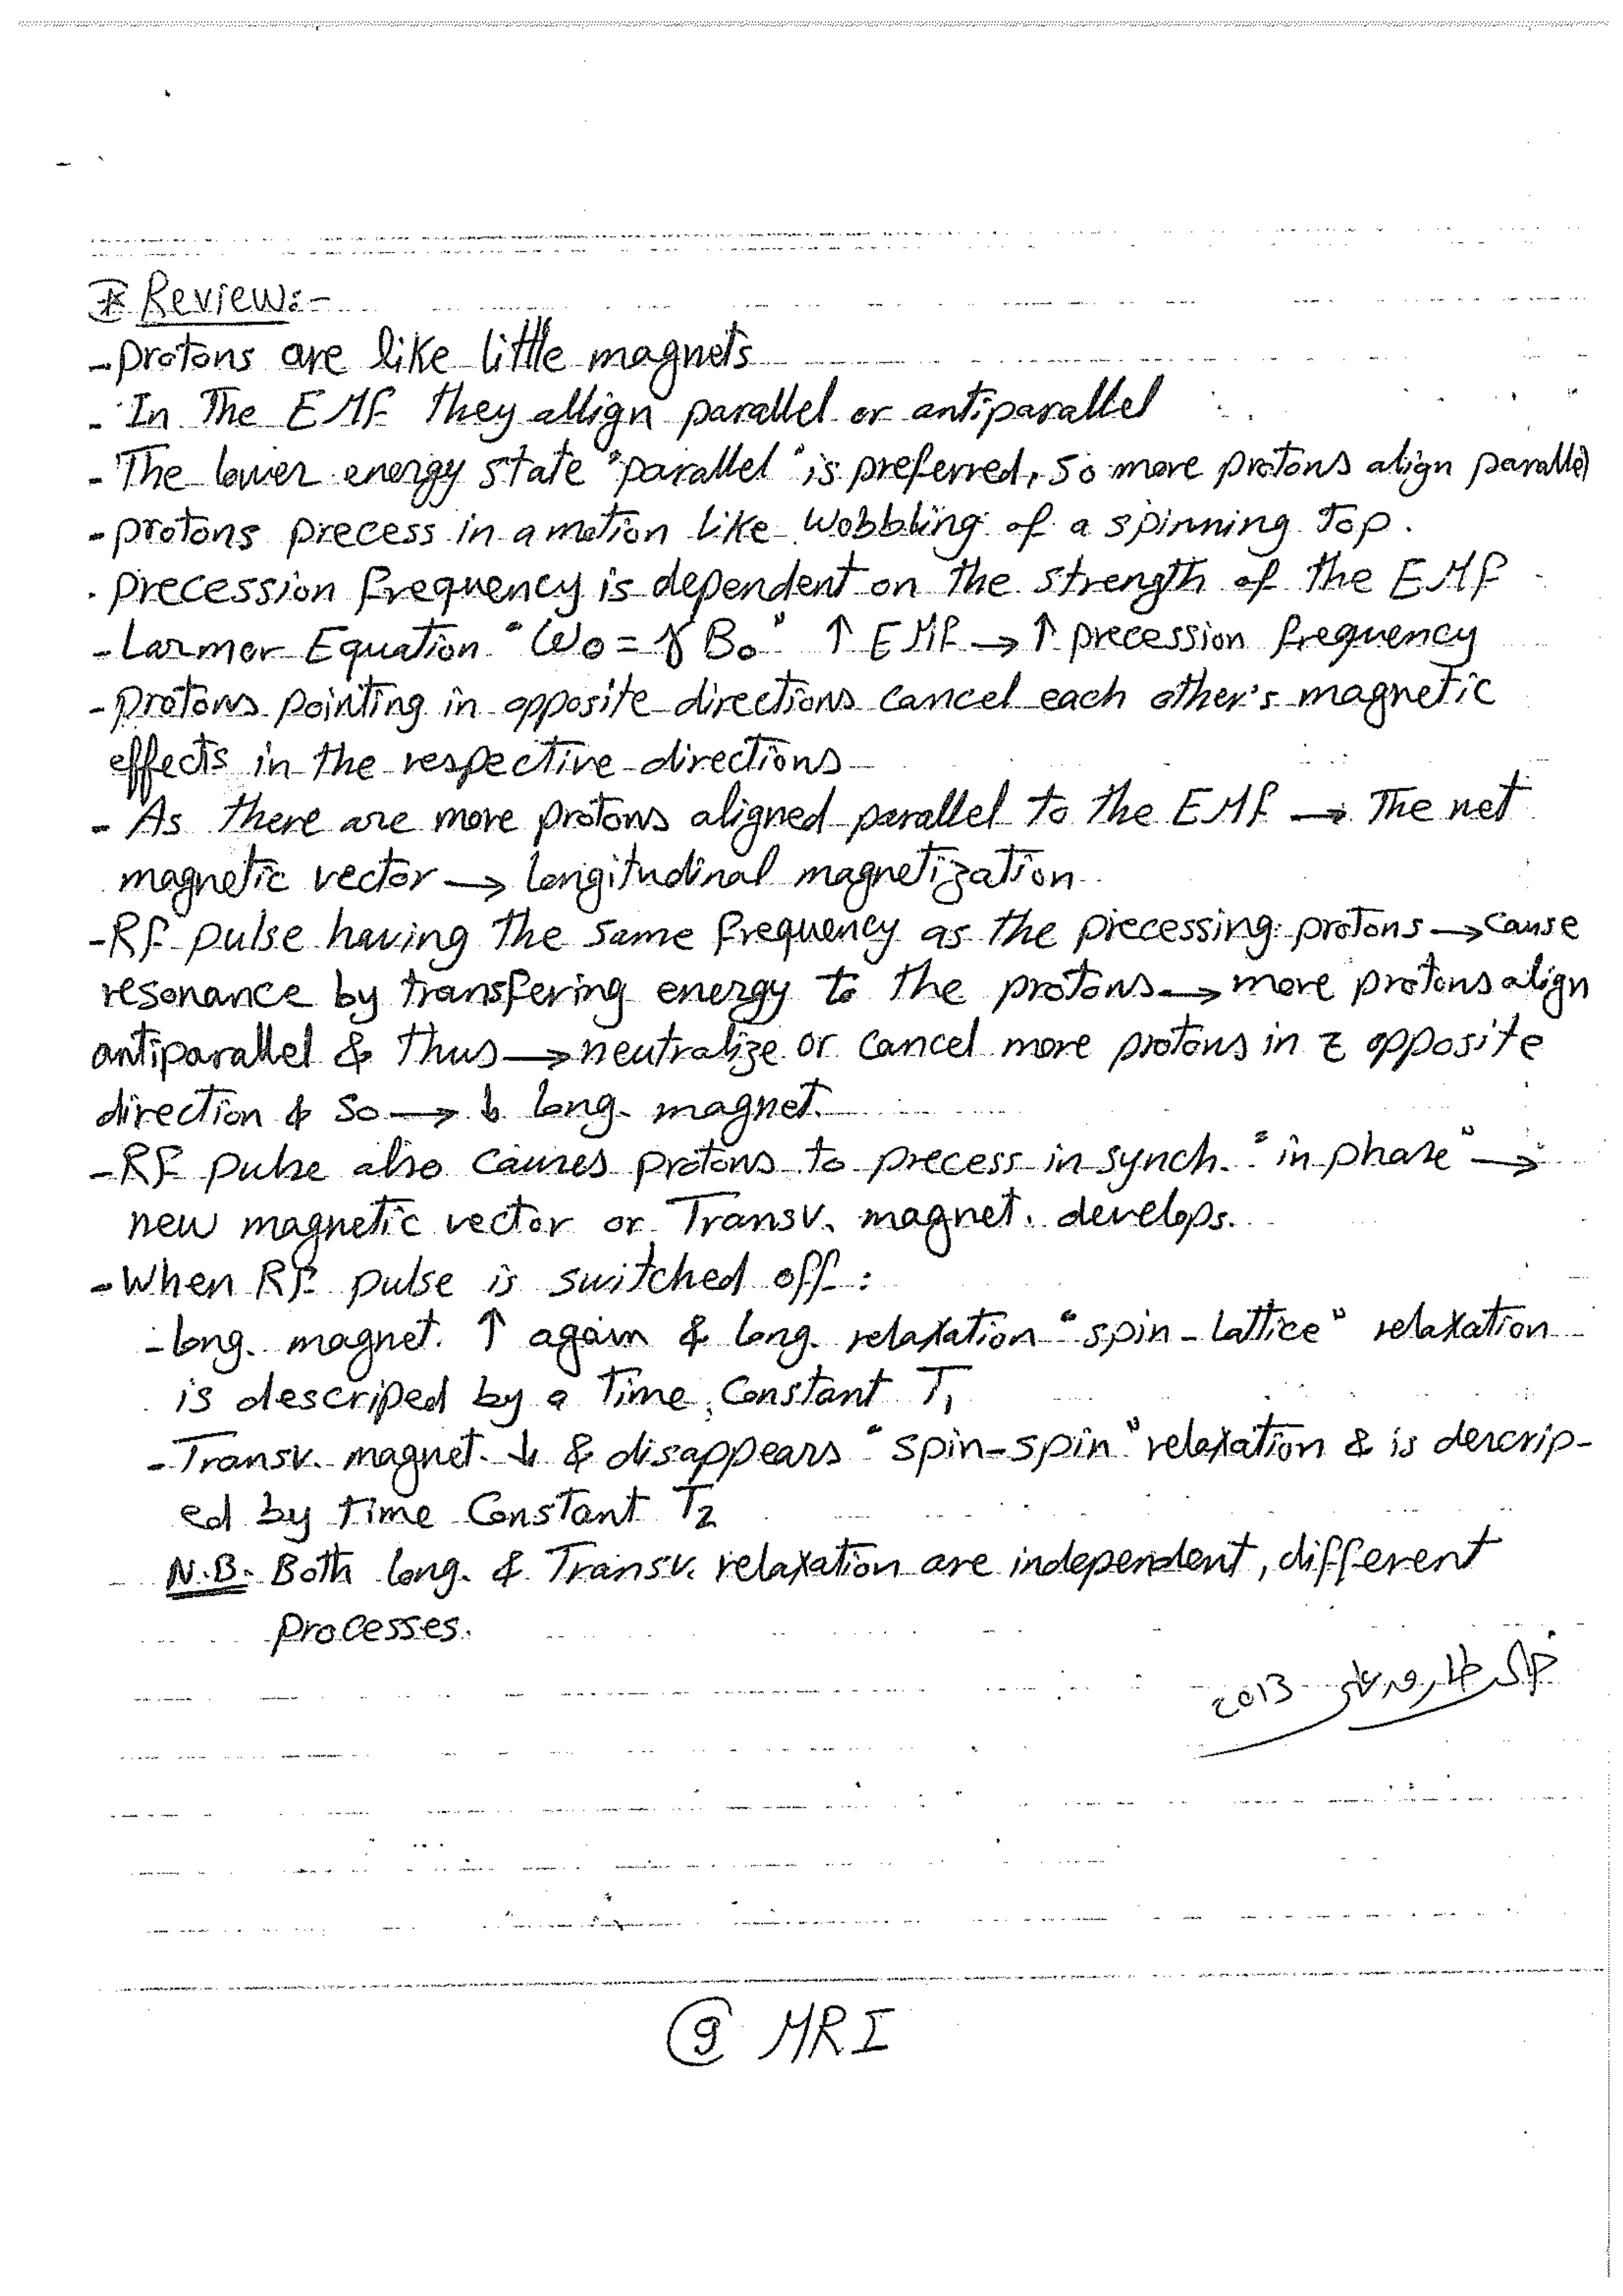 * Review:-
- protons are like little magnets
- In The EMF they allign parallel or antiparallel
- The lower energy state "parallel" is preferred, so more protons align parallel
- protons precess in a motion like wobbling of a spinning Top.
. precession frequency is dependent on the strength of the EMF
- Larmor Equation "ω₀ = γ B₀" ↑ EMF → ↑ precession frequency
- protons pointing in opposite directions cancel each other's magnetic
effects in the respective directions
- As there are more protons aligned parallel to the EMF → The net
magnetic vector → longitudinal magnetization.
- RF pulse having the same frequency as the precessing protons → cause
resonance by transfering energy to the protons → more protons align
antiparallel & thus → neutralize or cancel more protons in z opposite
direction & so → ↓ long. magnet.
- RF pulse also causes protons to precess in synch. "in phase" →
new magnetic vector or Transv. magnet. develops.
- When RF pulse is switched off :
- long. magnet. ↑ again & long. relaxation "spin-lattice" relaxation
is descriped by a Time Constant T₁
- Transv. magnet. ↓ & disappears "spin-spin" relaxation & is descrip-
ed by time Constant T₂
N.B. Both long. & Transv. relaxation are independent, different
processes.
2013
9 MRI